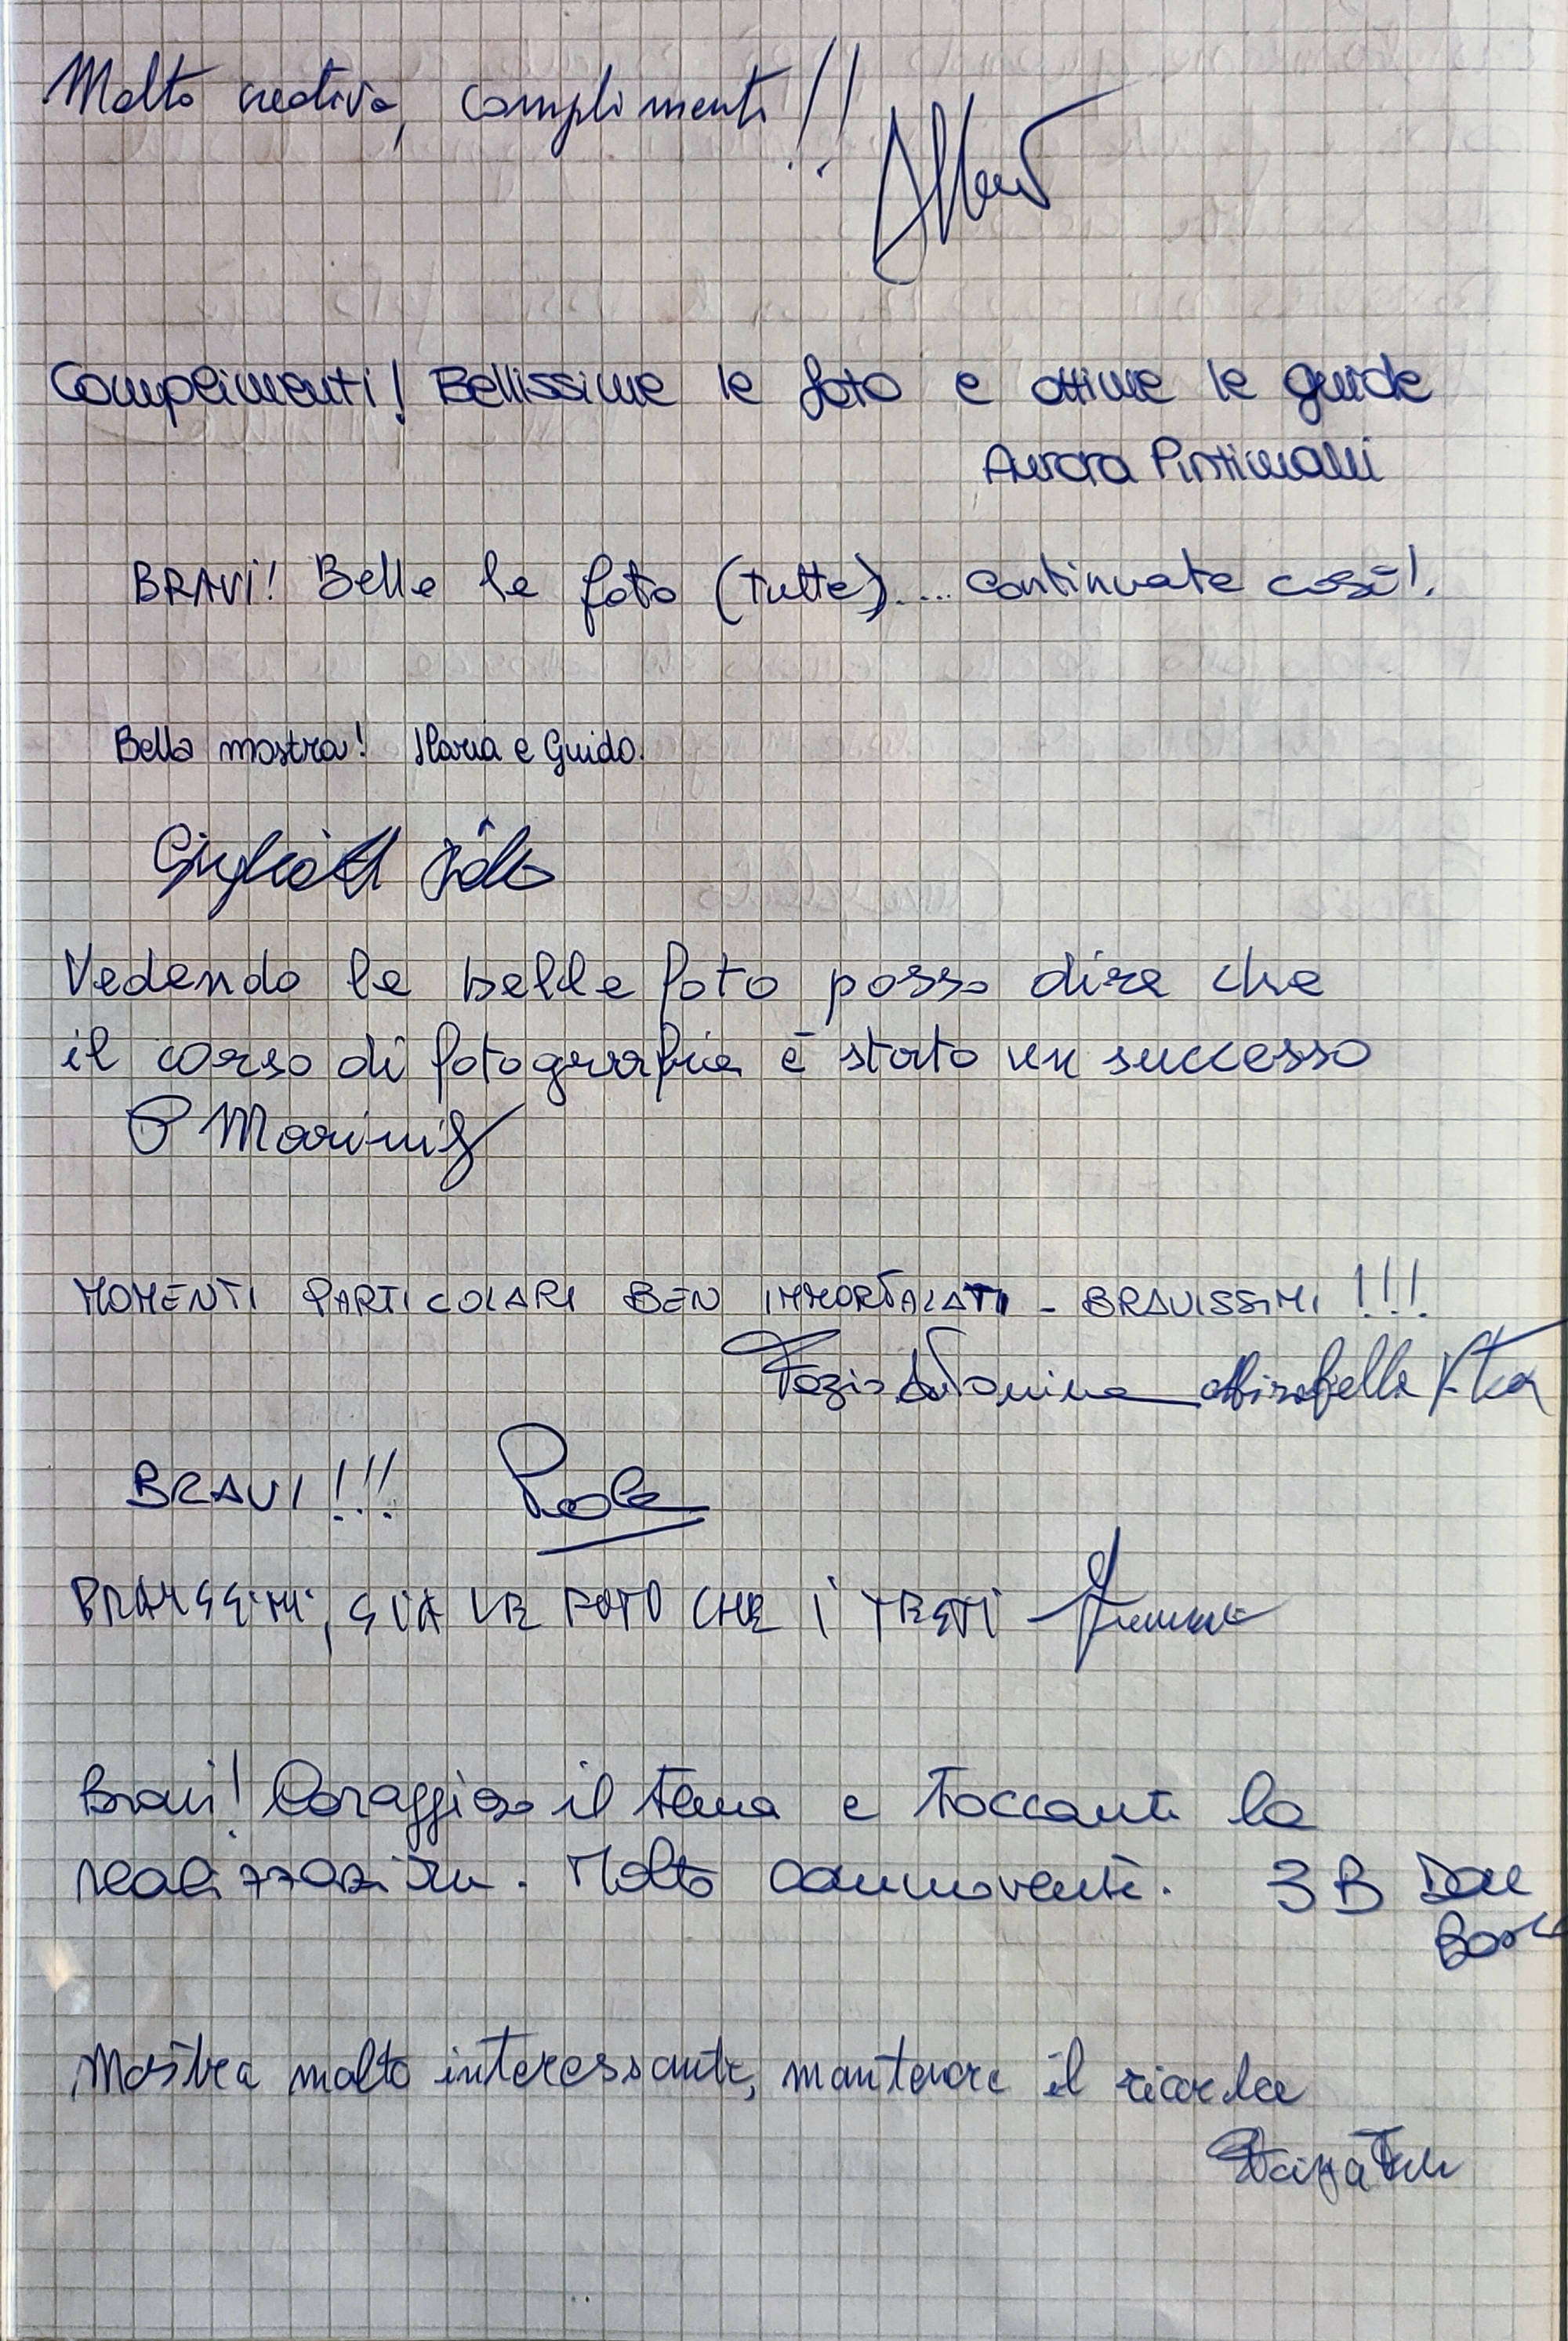 Molto creativa, complimenti!!
Complimenti! Bellissime le foto e ottime le guide
Aurora Pintimalli
BRAVI! Belle le foto (tutte).... continuate così!.
Bella mostra! Ilaria e Guido.
Vedendo le belle foto posso dire che
il corso di fotografia è stato un successo
P Marini
MOMENTI PARTICOLARI BEN IMMORTALATI - BRAVISSIMI!!!
Fazio Antonina Mirabella
BRAVI!!! Paola
BRAVISSIMI, SIA LE FOTO CHE I TESTI
Bravi! Coraggioso il tema e toccante la
realizzazione. Molto commovente. 3B Don
Bosco
Mostra molto interessante, mantenere il